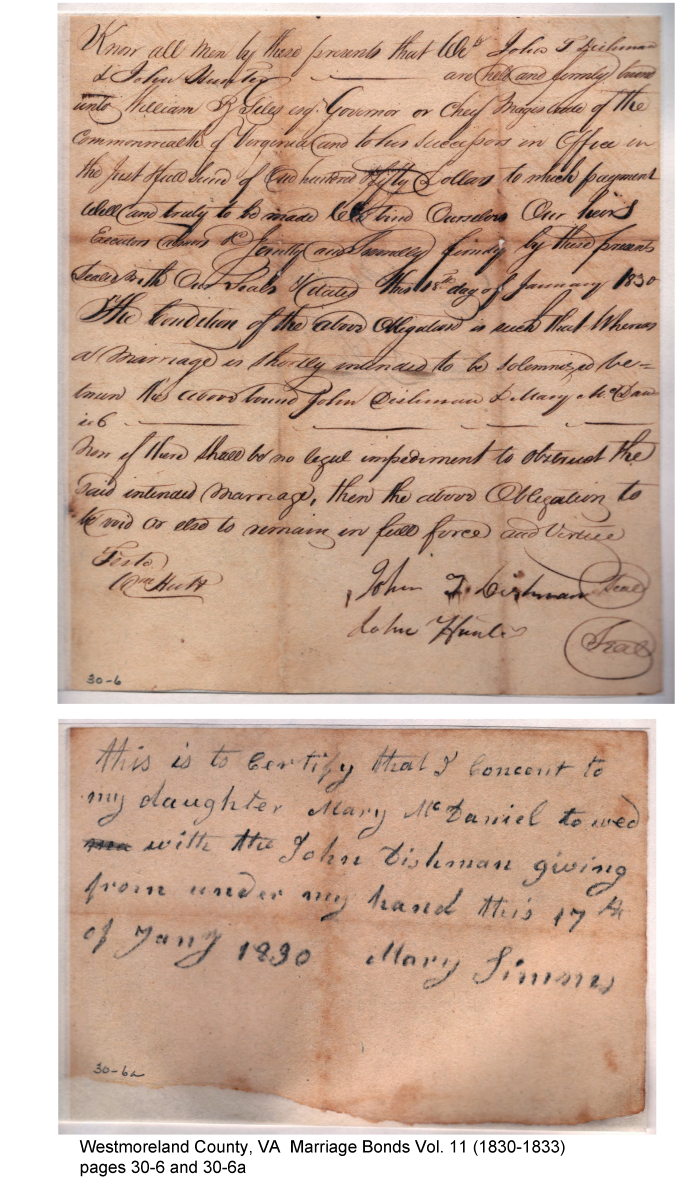 Know all men by these presents that We John T Dishman
& John Hunter are held and firmly bound
unto William B Giles esq. Governor or Chief Magistrate of the
Commonwealth of Virginia and to his successors in Office in
the Just & full Sum of One hundred & fifty Dollars to which payment
Well and truly to be made We bind Ourselves Our heirs
Executors admrs &c Jointly and Severally firmly by these presents
Sealed with Our Seals & dated this 18th day of January 1830
The Condition of the above Obligation is such that Whereas
a Marriage is shortly intended to be solemnized be=
tween the above bound John Dishman & Mary McDan
iel
Now if there shall be no legal impediment to obstruct the
said intended Marriage, then the above Obligation to
be void or else to remain in full force and Virtue
Teste
Wm Hutt
John T. Dishman Seal
John Hunter Seal
30-6
this is to Certify that I Concent to
my daughter Mary McDaniel to wed
with the John Dishman giving
from under my hand this 17th
of Jany 1830 Mary Simms
30-6a
Westmoreland County, VA Marriage Bonds Vol. 11 (1830-1833)
pages 30-6 and 30-6a